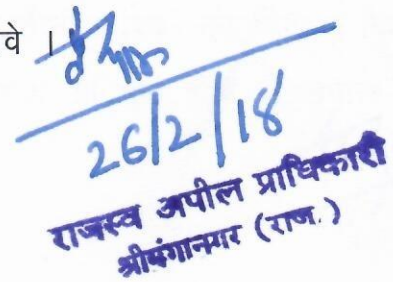 वे ।
26/2/18
राजस्व अपील प्राधिकारी
श्रीगंगानगर (राज.)